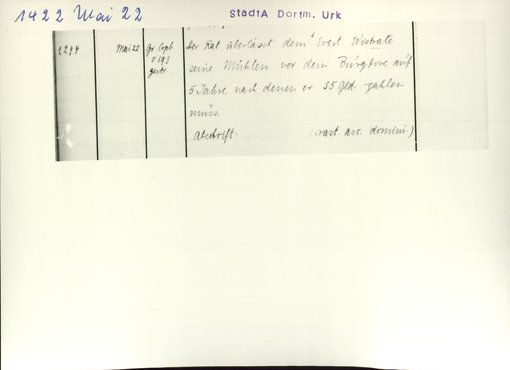 1422 Mai 22
StadtA Dortm. Urk
Mai 22
Der Rat überlässt dem Evert Wistrate
seine Mühlen vor dem Burgtore auf
5 Jahre, nach denen er 35 Gld. zahlen
muss.
Abschrift.